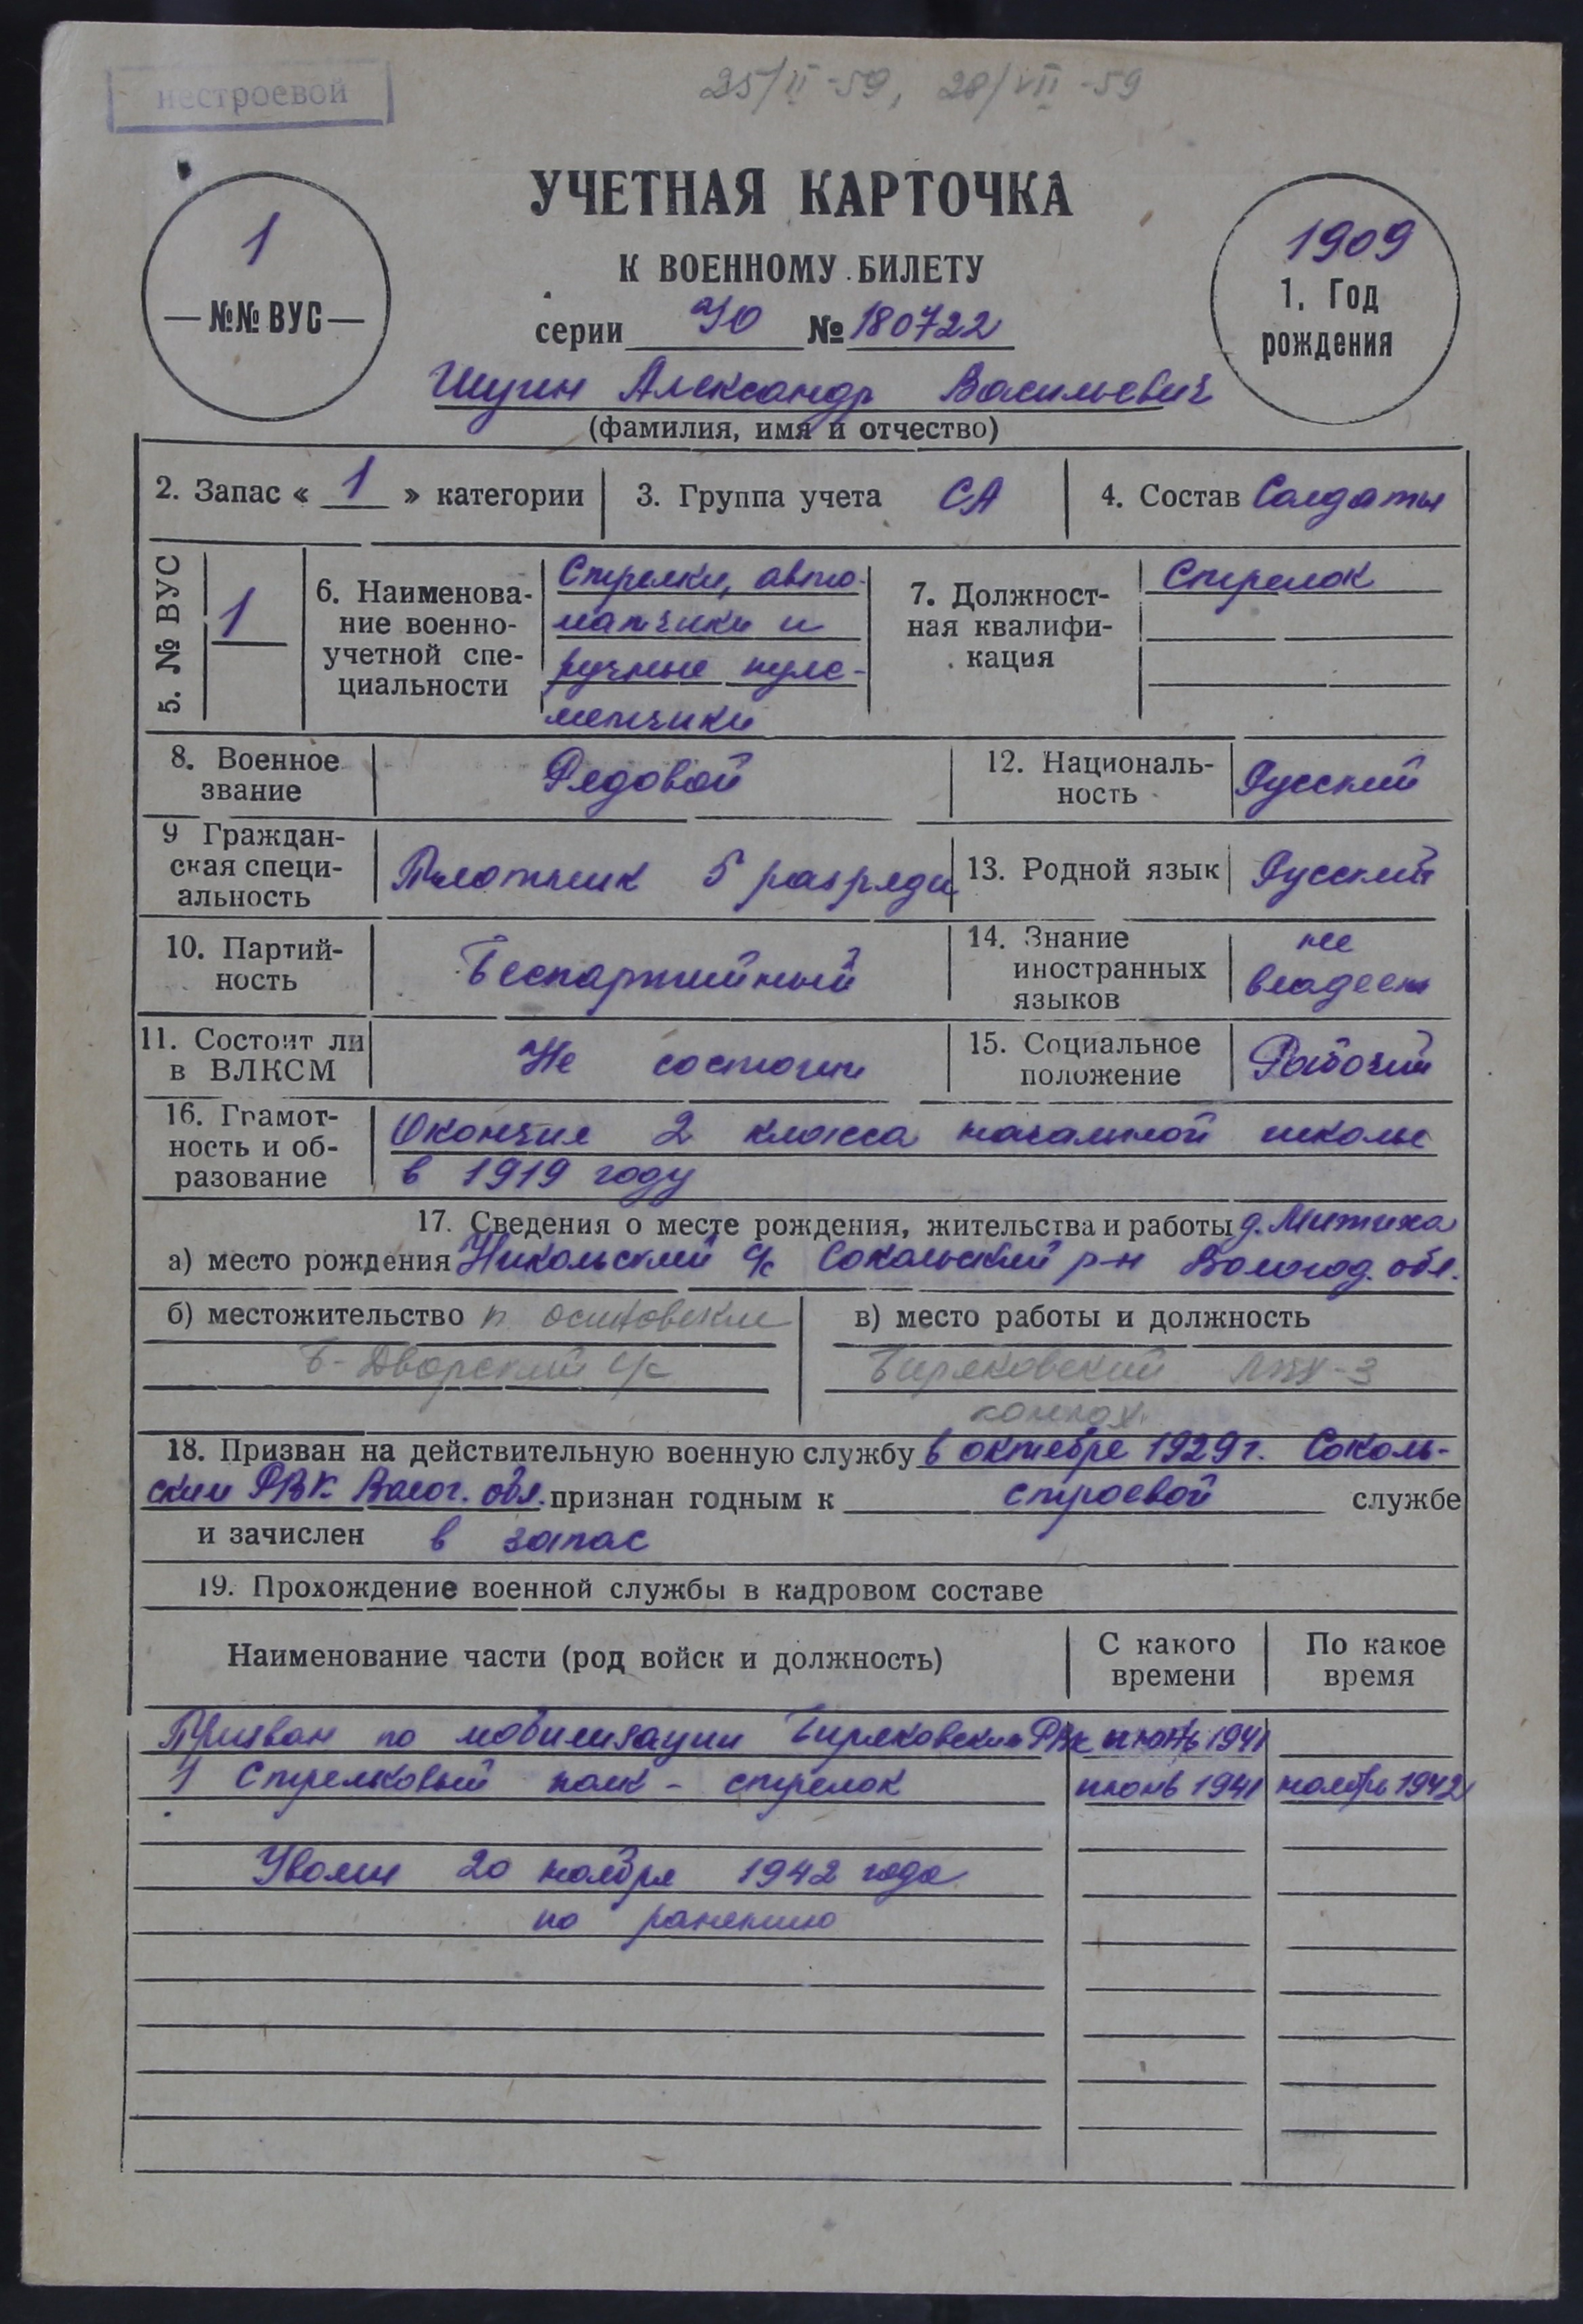 нестроевой
25/II-59, 28/VII-59
УЧЕТНАЯ КАРТОЧКА
К ВОЕННОМУ БИЛЕТУ
1
—№№ ВУС—
серии № 180722
1909
1. Год
рождения
Шугин Александр Васильевич
(фамилия, имя и отчество)
2. Запас « 1 » категории
3. Группа учета СА
4. Состав Солдаты
5. № ВУС
1
6. Наименова-
ние военно-
учетной спе-
циальности
Стрелки, авто-
матчики и
ручные пуле-
метчики
7. Должност-
ная квалифи-
кация
Стрелок
8. Военное
звание
Рядовой
12. Националь-
ность
Русский
9 Граждан-
ская специ-
альность
Плотник 5 разряда
13. Родной язык
Русский
10. Партий-
ность
Беспартийный
14. Знание
иностранных
языков
не
владеет
11. Состоит ли
в ВЛКСМ
Не состоит
15. Социальное
положение
Рабочий
16. Грамот-
ность и об-
разование
Окончил 2 класса начальной школы
в 1919 году
17. Сведения о месте рождения, жительства и работы д. Митиха
а) место рождения Никольский с/с Сокольский р-н Вологод. обл.
б) местожительство п. осиновский
Б-Дворский с/с
в) место работы и должность
Биряковский ЛПХ-3
18. Призван на действительную военную службу в октябре 1929 г. Соколь-
ским РВК Волог. обл. признан годным к строевой службе
и зачислен в запас
19. Прохождение военной службы в кадровом составе
Наименование части (род войск и должность)
С какого
времени
По какое
время
Призван по мобилизации Биряковским РВК июнь 1941
1 Стрелковый полк - стрелок июнь 1941 ноябрь 1942
Уволен 20 ноября 1942 года
по ранению